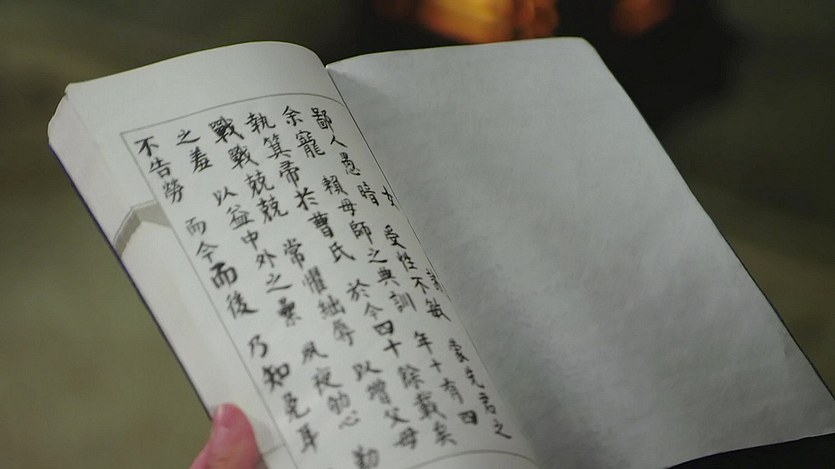 女誡
鄙人愚暗 受性不敏 蒙先君之
余寵 賴母師之典訓 年十有四
執箕帚於曹氏 於今四十餘載矣
戰戰兢兢 常懼絀辱 以增父母
之羞 以益中外之累 夙夜劬心 勤
不告勞 而今而後 乃知免耳